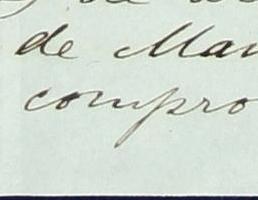 de Man
compro